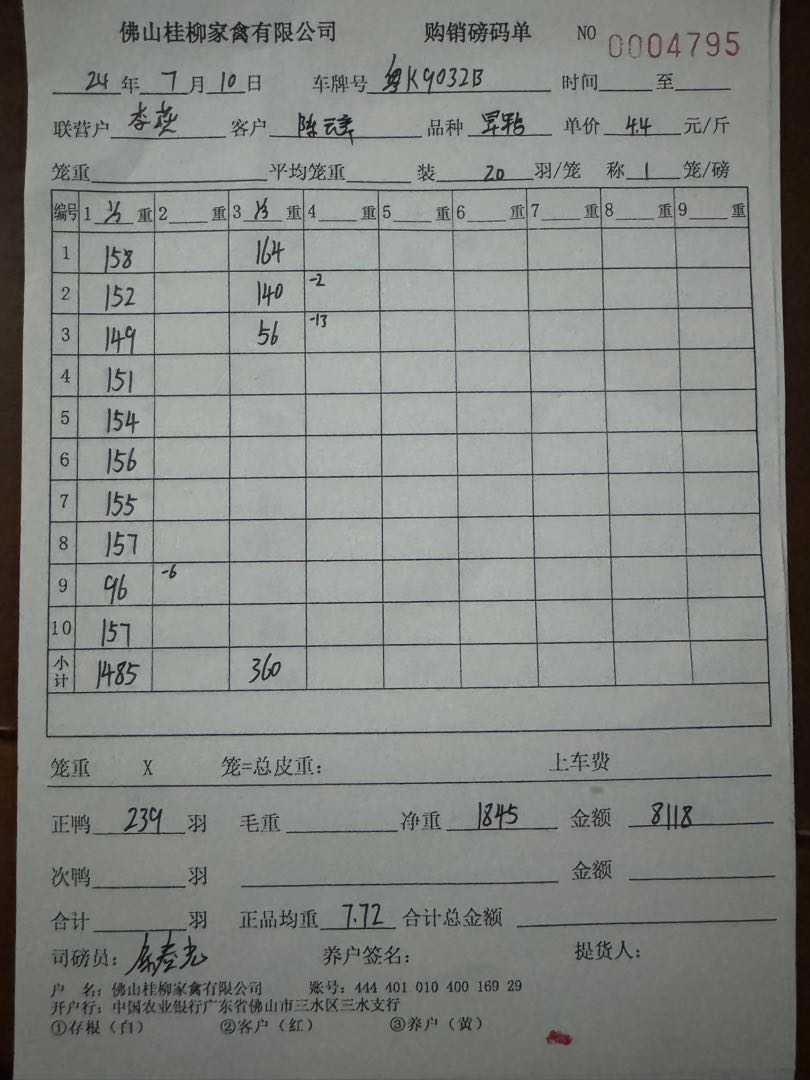 佛山桂柳家禽有限公司 购销磅码单 NO 0004795
24 年 7 月 10 日 车牌号 粤K9032B 时间 至
联营户 李 客户 陈 品种 单价 4.4 元/斤
笼重 平均笼重 装 20 羽/笼 称 1 笼/磅
编号 1 重 2 重 3 重 4 重 5 重 6 重 7 重 8 重 9 重
1 158 164
2 152 140 -2
3 149 56 -13
4 151
5 154
6 156
7 155
8 157
9 96 -6
10 157
小计 1485 360
笼重 X 笼=总皮重: 上车费
正鸭 239 羽 毛重 净重 1845 金额 8118
次鸭 羽 金额
合计 羽 正品均重 7.72 合计总金额
司磅员: 养户签名: 提货人:
户 名: 佛山桂柳家禽有限公司 账号: 444 401 010 400 169 29
开户行: 中国农业银行广东省佛山市三水区三水支行
①存根(白) ②客户(红) ③养户(黄)